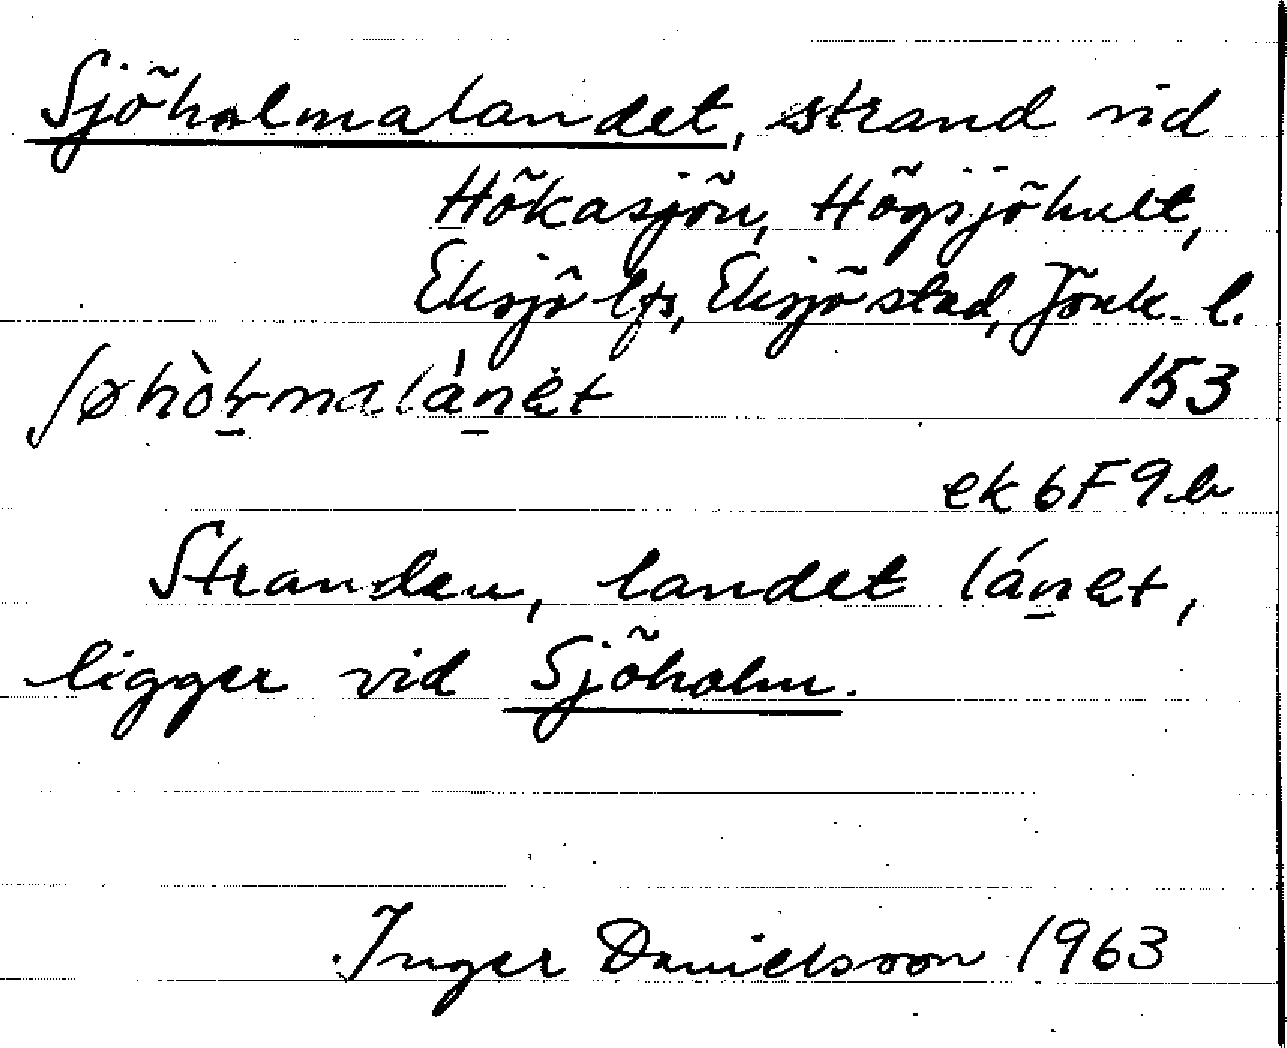 Sjöholmalandet, strand vid
Hökasjön, Högsjöhult,
Eksjö lfs, Eksjö stad, Jönk. l.
ʃøhòl̠malán̠et 153
ek 6F9b
Stranden, landet lán̠et,
ligger vid Sjöholm.
Inger Danielsson 1963